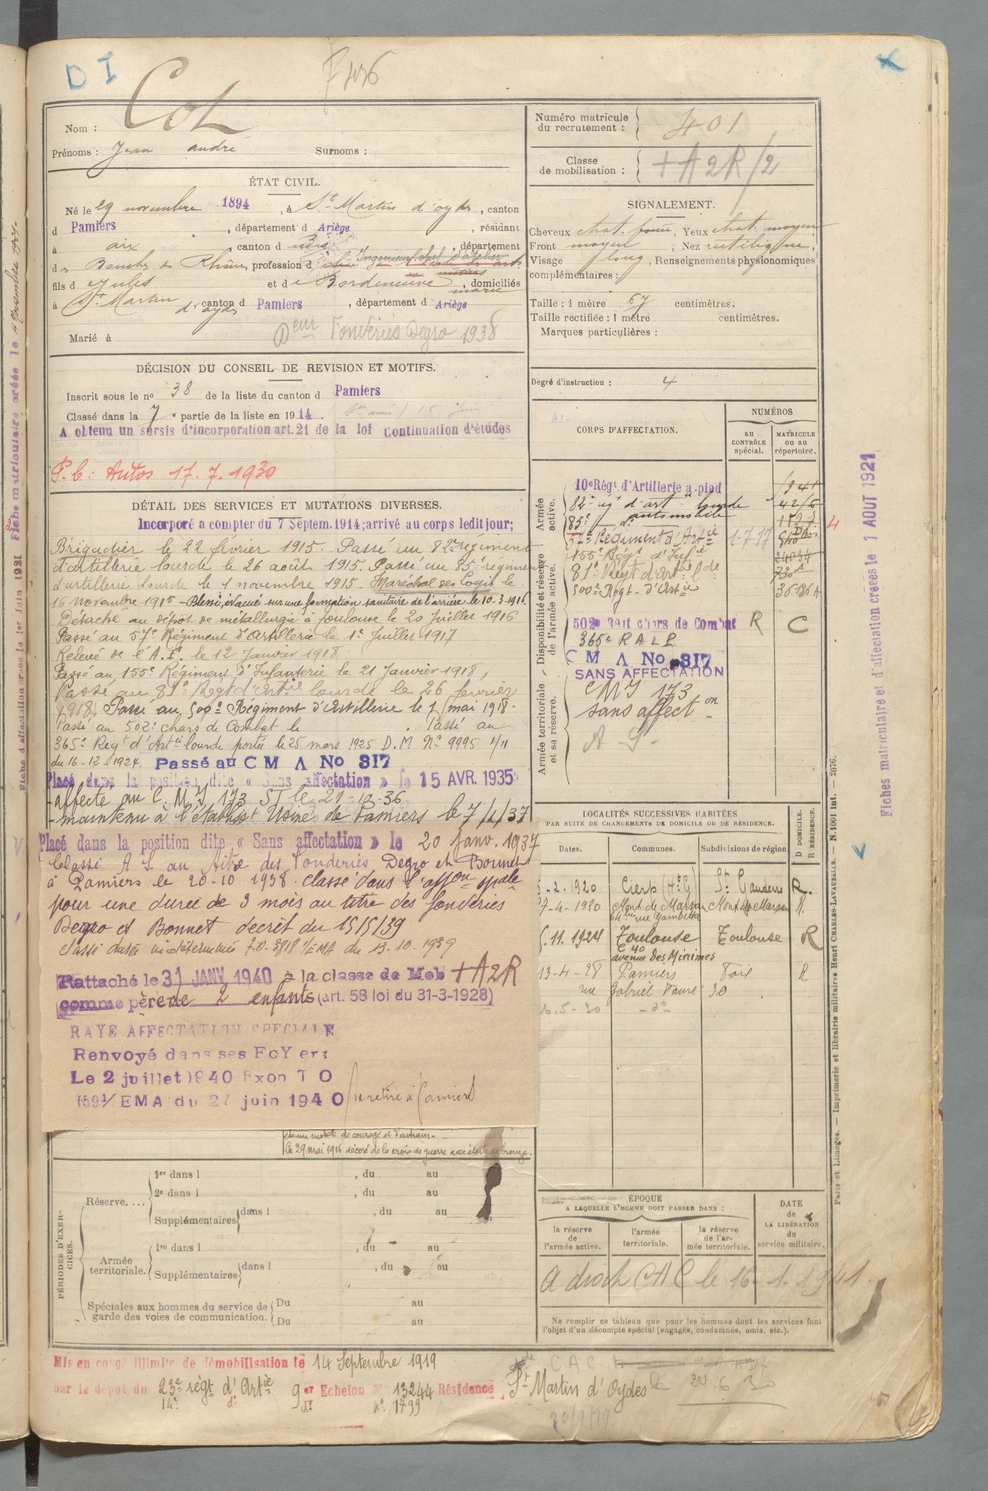 D I
Nom : Col
Prénoms : Jean andré Surnoms :
ÉTAT CIVIL.
Né le 29 novembre 1894, à St Martin d'oydes, canton
d Pamiers, département d Ariège, résidant
à aix, canton d , département
d es Bouches du Rhône, profession d
fils d Jules et d e Bordeneuve, domiciliés
à St Martin d'oydes, canton d Pamiers, département d Ariège
Marié à
Deur Fonderies Degro 1938
DÉCISION DU CONSEIL DE REVISION ET MOTIFS.
Inscrit sous le no 38 de la liste du canton d Pamiers
Classé dans la 7e partie de la liste en 1914.
A obtenu un sursis d'incorporation art. 21 de la loi Continuation d'études
P.C: Autos 17.7.1930
DÉTAIL DES SERVICES ET MUTATIONS DIVERSES.
Incorporé à compter du 7 Septem. 1914; arrivé au corps ledit jour;
Brigadier le 22 février 1915. Passé au 82e régiment
d'artillerie lourde le 26 août 1915. Passé au 85e régiment
d'artillerie lourde le 1 novembre 1915. Maréchal des Logis le
16 novembre 1915 - Blessé, évacué sur une formation sanitaire de l'arrière le 10.3.1916.
Détaché au dépot de métallurgie à Toulouse le 20 Juillet 1916
Passé au 57e Régiment d'Artillerie le 1er Juillet 1917
Relevé de l'A.F. le 12 Janvier 1918
Passé au 155e Régiment d'Infanterie le 21 Janvier 1918,
Passé au 81e Regt d'Artie lourde le 26 février
1918, Passé au 500e Régiment d'Artillerie le 1 mai 1918.
Passé au 502e chars de Combat le . Passé au
365e Regt d'Artie lourde portée le 25 mars 1925 D.M No 9995 1/11
du 16-12-1924. Passé au C M A No 317
Placé dans la position dite « Sans affectation » le 15 AVR. 1935
affecté au C.M.I 173 ST le 21-12-36
maintenu à l'établist Usines de Pamiers le 7/4/37
Placé dans la position dite « Sans affectation » le 20 Janv. 1937
Classé A.S. au titre des Fonderies Degro et Bonnet
à Pamiers le 20-10 1938. classé dans l'affon spale
pour une durée de 3 mois au titre des fonderies
Degro et Bonnet decret du 15/5/39
Rattaché le 31 JANV 1940 à la classe de Mob + A 2 R
comme père de 2 enfants (art. 58 loi du 31-3-1928)
RAYE AFFECTATION SPECIALE
Renvoyé dans ses FoYers
Le 2 juillet 1940 Exon T O
1594/EMA du 27 juin 1940 se retire à Pamiers
le 29 mai 1916 décoré de la croix de guerre avec étoile de bronze.
PÉRIODES D'EXERCICES.
Réserve....
1re dans l , du au
2e dans l , du au
Supplémentaires dans l , du au
Armée territoriale.
1re dans l , du au
Supplémentaires dans l , du au
Spéciales aux hommes du service de garde des voies de communication.
Du au
Du au
Mis en congé illimité de démobilisation le 14 Septembre 1919
par le dépot du 23e régt d'Artie 9er Echelon No 13244 Résidence St Martin d'Oydes
14e do do no 1799
Numéro matricule du recrutement : 401
Classe de mobilisation : + A 2 R /2
SIGNALEMENT.
Cheveux chat. foncé, Yeux chat. moyen
Front moyen, Nez rectiligne,
Visage long, Renseignements physionomiques
complémentaires :
Taille : 1 mètre 67 centimètres.
Taille rectifiée : 1 mètre centimètres.
Marques particulières :
Degré d'instruction : 4
CORPS D'AFFECTATION.
NUMÉROS
au CONTRÔLE spécial.
MATRICULE ou au répertoire.
Armée active.
Disponibilité et réserve de l'armée active.
Armée territoriale et sa réserve.
10e Régt d'Artillerie à pied
82e rég d'art lourde
85e do automobile
57e Régiment d'Artie 1-7-17
155e Régt d'Infie
81e Regt d'Artie lde
500e Regt. d'Artie
502e Bat chars de Combat R C
365e R A L P
C M A No 317
SANS AFFECTATION
CMI 173
sans affecton
A S
LOCALITÉS SUCCESSIVES HABITÉES
PAR SUITE DE CHANGEMENTS DE DOMICILE OU DE RÉSIDENCE.
Dates. Communes. Subdivisions de région D DOMICILE. R RÉSIDENCE.
5-2.1920 Cierp (Hte G) St Gaudens R.
7-4-1920 Mont de Marsan Mont de Marsan R.
64 rue Gambetta
5.11.1924 Toulouse Toulouse R
40 avenue des Minimes
13-4-28 Pamiers Foix R
rue Gabriel Fauré 30
ÉPOQUE
A LAQUELLE L'HOMME DOIT PASSER DANS :
la réserve de l'armée active.
l'armée territoriale.
la réserve de l'armée territoriale.
DATE de LA LIBÉRATION du service militaire.
A droit CAC le 16-1-1941
Ne remplir ce tableau que pour les hommes dont les services font
l'objet d'un décompte spécial (engagés, condamnés, omis, etc.).
Fiches matriculaire et d'affectation créées le 1 AOUT 1921
Paris et Limoges. — Imprimerie et librairie militaires Henri CHARLES-LAVAUZELLE. — N. 1001 Int. — 2076.